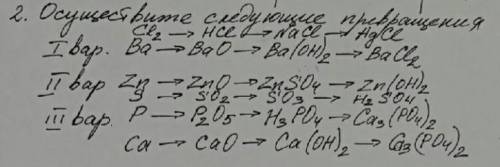 2. Осуществите следующие превращения
Cl₂ → HCl → NaCl → AgCl
I вар. Ba → BaO → Ba(OH)₂ → BaCl₂
II вар Zn → ZnO → ZnSO₄ → Zn(OH)₂
S → SO₂ → SO₃ → H₂SO₄
III вар. P → P₂O₅ → H₃PO₄ → Ca₃(PO₄)₂
Ca → CaO → Ca(OH)₂ → Ca₃(PO₄)₂